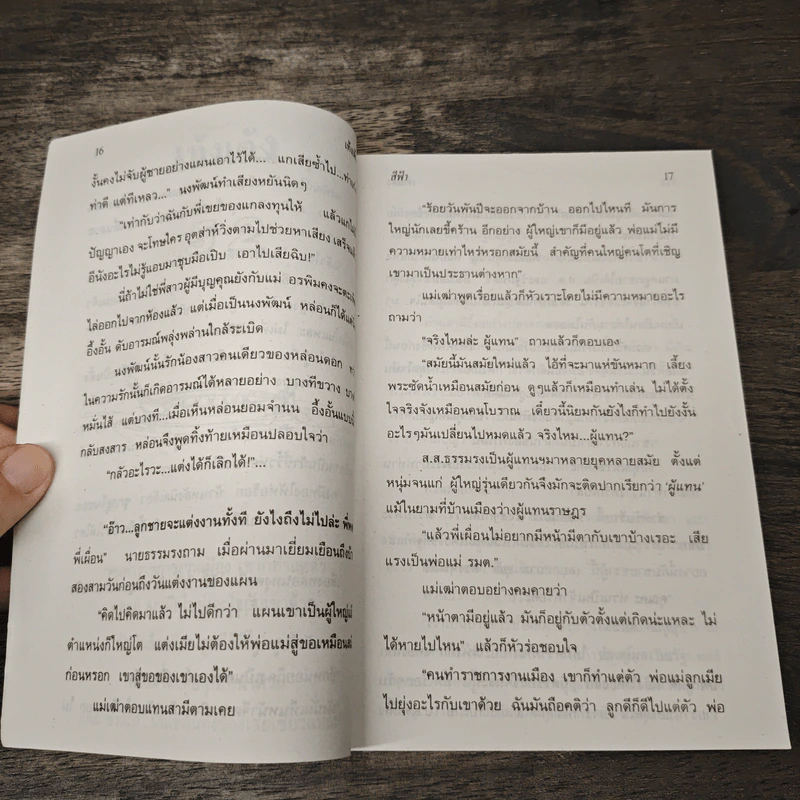 16
งั้นคงไม่จับผู้ชายอย่างแผนเอาไว้ได้... แกเสียซ้ำไป...
ท่าดี แต่ทีเหลว..." นงพัฒน์ทำเสียงหยันนิดๆ
"เท่ากับว่าฉันกับพี่เขยของแกลงทุนให้ แล้วแก
ปัญญาเอง จะโทษใคร อุตส่าห์วิ่งตามไปช่วยหาเสียง เสร็จแล้ว
อีนังอะไรไม่รู้แอบมาชุบมือเปิบ เอาไปเสียฉิบ!"
นี่ถ้าไม่ใช่พี่สาวผู้มีบุญคุณยังกับแม่ อรพิมคงจะตะ
ไล่ออกไปจากห้องแล้ว แต่เมื่อเป็นนงพัฒน์ หล่อนก็ได้แต่
อึ้งอั้น ดับอารมณ์พลุ่งพล่านใกล้ระเบิด
นงพัฒน์นั้นรักน้องสาวคนเดียวของหล่อนดอก
ในความรักนั้นก็เกิดอารมณ์ได้หลายอย่าง บางทีขวาง
หมั่นไส้ แต่บางที...เมื่อเห็นหล่อนยอมจำนน อึ้งอั้น
กลับสงสาร หล่อนจึงพูดทิ้งท้ายเหมือนปลอบใจว่า
"กลัวอะไรวะ...แต่งได้ก็เลิกได้!"...
"อ้าว...ลูกชายจะแต่งงานทั้งที ยังไงถึงไม่ไปล่ะ
พี่เผื่อน" นายธรรมรงถาม เมื่อผ่านมาเยี่ยมเยือนถึง
สองสามวันก่อนถึงวันแต่งงานของแผน
"คิดไปคิดมาแล้ว ไม่ไปดีกว่า แผนเขาเป็นผู้ใหญ่
ตำแหน่งก็ใหญ่โต แต่งเมียไม่ต้องให้พ่อแม่สู่ขอเหมือน
ก่อนหรอก เขาสู่ขอของเขาเองได้"
แม่เฒ่าตอบแทนสามีตามเคย
สีฟ้า 17
"ร้อยวันพันปีจะออกจากบ้าน ออกไปไหนที มันการ
ใหญ่นักเลยขี้คร้าน อีกอย่าง ผู้ใหญ่เขาก็มีอยู่แล้ว พ่อแม่ไม่มี
ความหมายเท่าไหร่หรอกสมัยนี้ สำคัญที่คนใหญ่คนโตที่เชิญ
เขามาเป็นประธานต่างหาก"
แม่เฒ่าพูดเรื่อยแล้วก็หัวเราะโดยไม่มีความหมายอะไร
ถามว่า
"จริงไหมล่ะ ผู้แทน" ถามแล้วก็ตอบเอง
"สมัยนี้มันสมัยใหม่แล้ว ไอ้ที่จะมาแห่ขันหมาก เลี้ยง
พระซัดน้ำเหมือนสมัยก่อน ดูๆแล้วก็เหมือนทำเล่น ไม่ได้ตั้ง
ใจจริงจังเหมือนคนโบราณ เดี๋ยวนี้นิยมกันยังไงก็ทำไปยังงั้น
อะไรๆมันเปลี่ยนไปหมดแล้ว จริงไหม...ผู้แทน?"
ส.ส.ธรรมรงเป็นผู้แทนฯมาหลายยุคหลายสมัย ตั้งแต่
หนุ่มจนแก่ ผู้ใหญ่รุ่นเดียวกันจึงมักจะติดปากเรียกว่า 'ผู้แทน'
แม้ในยามที่บ้านเมืองว่างผู้แทนราษฎร
"แล้วพี่เผื่อนไม่อยากมีหน้ามีตากับเขาบ้างเรอะ เสีย
แรงเป็นพ่อแม่ รมต."
แม่เฒ่าตอบอย่างคมคายว่า
"หน้าตามีอยู่แล้ว มันก็อยู่กับตัวตั้งแต่เกิดน่ะแหละ ไม่
ได้หายไปไหน" แล้วก็หัวร่อชอบใจ
"คนทำราชการงานเมือง เขาก็ทำแต่ตัว พ่อแม่ลูกเมีย
ไปยุ่งอะไรกับเขาด้วย ฉันมันถือคติว่า ลูกดีก็ดีไปแต่ตัว พ่อ